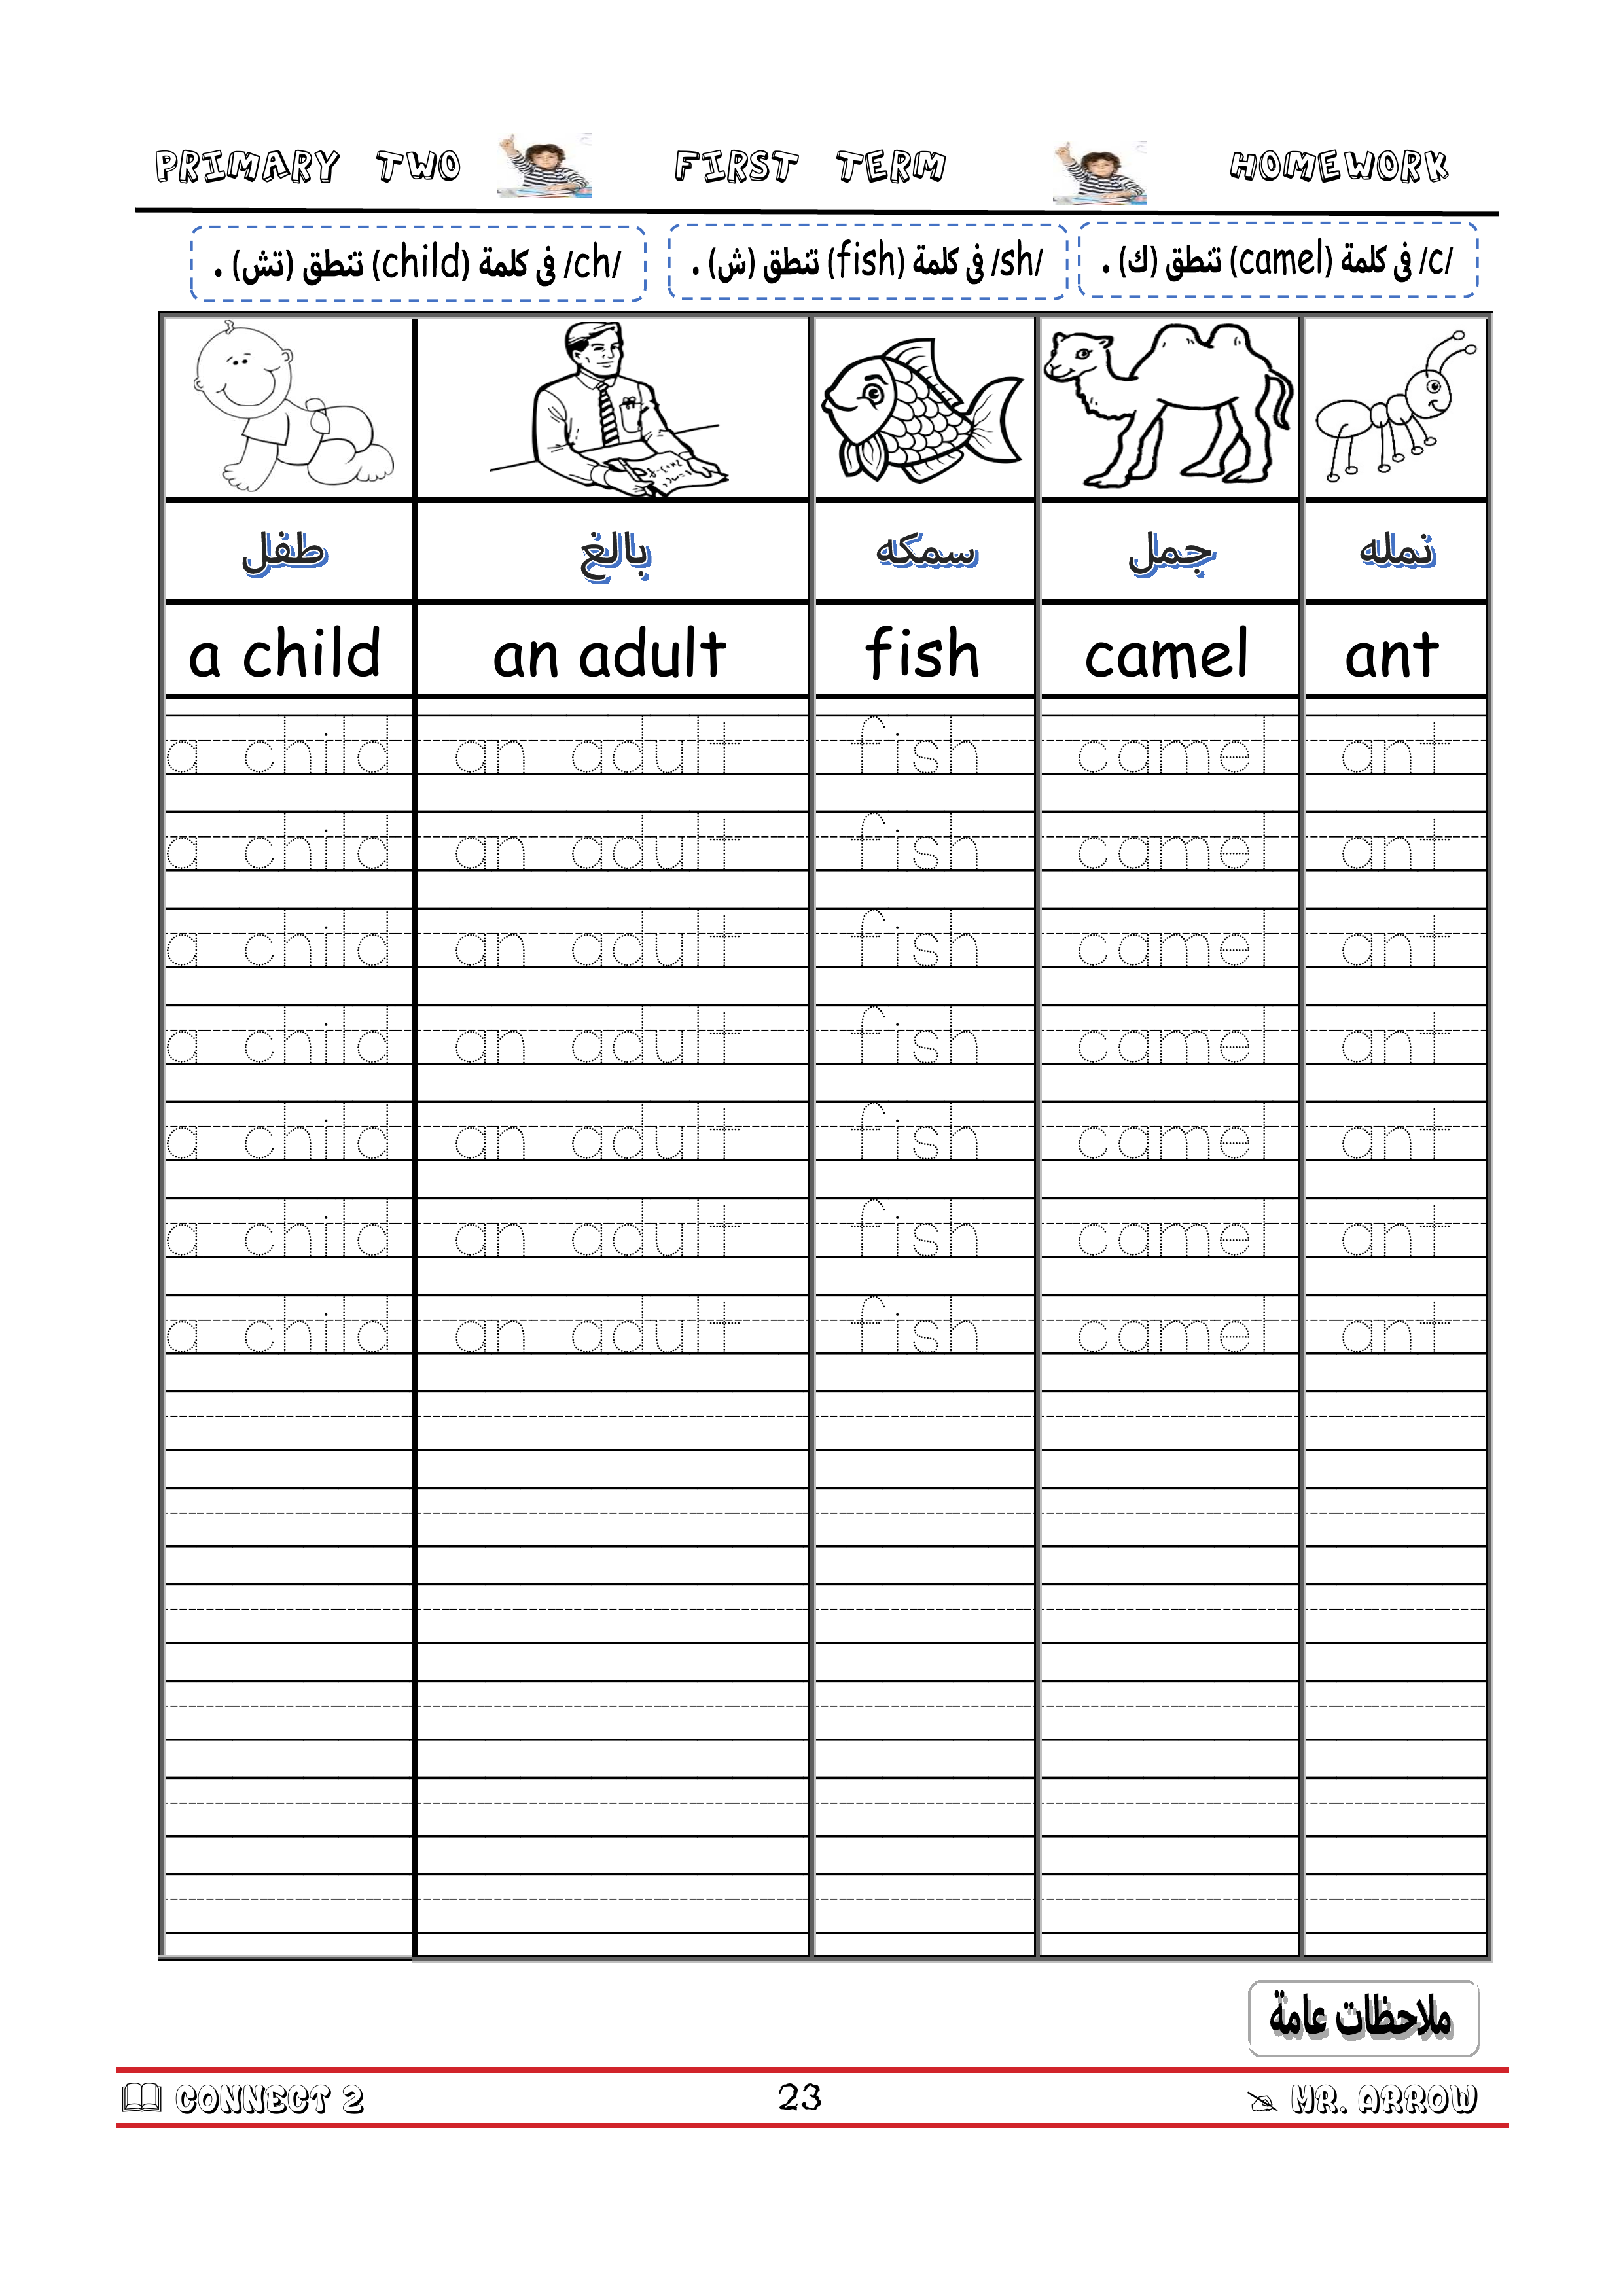 PRIMARY TWO FIRST TERM HOMEWORK
/c/ فى كلمة (camel) تنطق (ك) .
/sh/ فى كلمة (fish) تنطق (ش) .
/ch/ فى كلمة (child) تنطق (تش) .
طفل بالغ سمكه جمل نمله
a child an adult fish camel ant
a child an adult fish camel ant
a child an adult fish camel ant
a child an adult fish camel ant
a child an adult fish camel ant
a child an adult fish camel ant
a child an adult fish camel ant
a child an adult fish camel ant
ملاحظات عامة
CONNECT 2 23 MR. ARROW